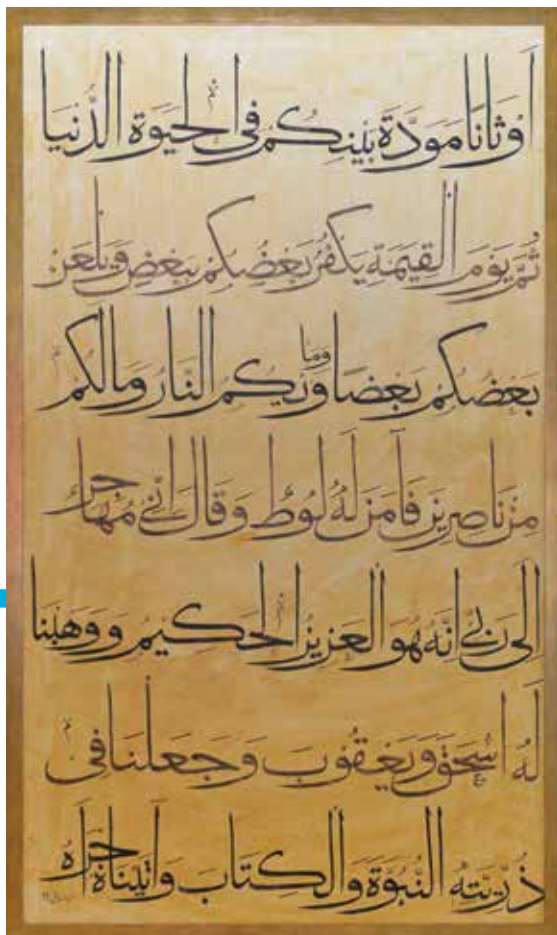 اَوْثانًا مَوَدَّةَ بَيْنِكُمْ فِى الْحَيوةِ الدُّنْيا
ثُمَّ يَوْمَ الْقِيمَةِ يَكْفُرُ بَعْضُكُمْ بِبَعْضٍ وَيَلْعَنُ
بَعْضُكُمْ بَعْضًا وَمَاْويكُمُ النّارُ وَمالَكُمْ
مِنْ ناصِرينَ فَآمَنَ لَهُ لُوطٌ وَقالَ اِنّى مُهاجِرٌ
اِلى رَبّى اِنَّهُ هُوَ الْعَزيزُ الْحَكيمُ وَ وَهَبْنا
لَهُ اِسْحقَ وَيَعْقُوبَ وَجَعَلْنا فى
ذُرِّيَّتِهِ النُّبُوَّةَ وَالْكِتابَ وَاتَيْناهُ اَجْرَهُ